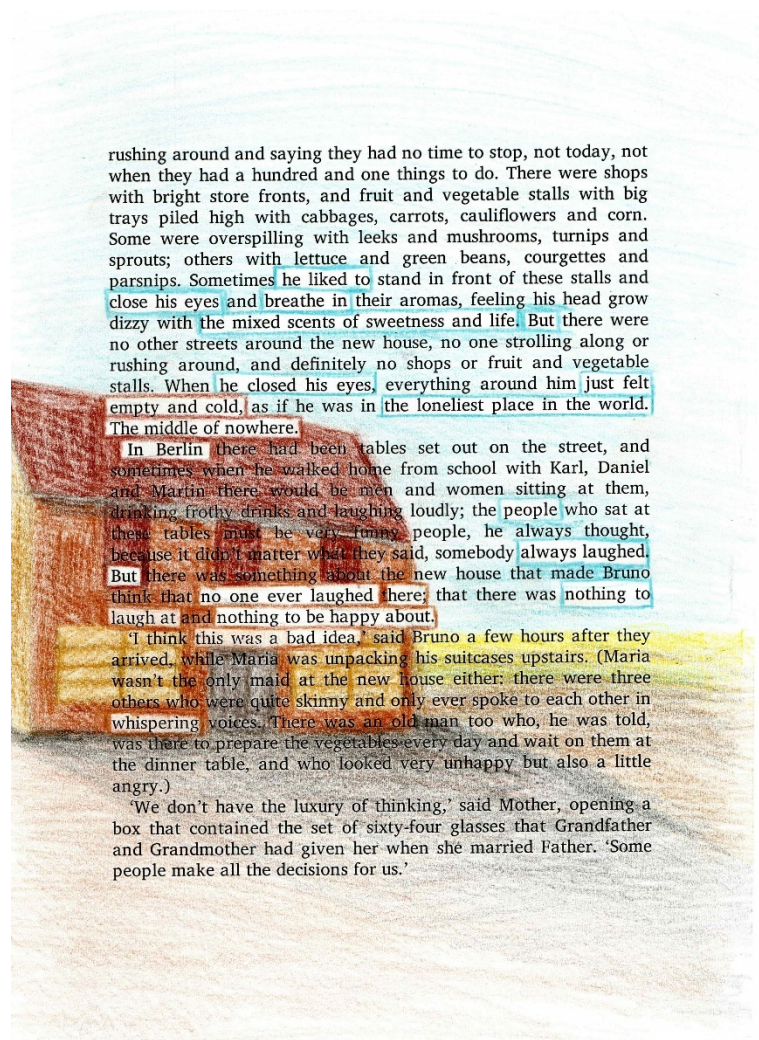 rushing around and saying they had no time to stop, not today, not
when they had a hundred and one things to do. There were shops
with bright store fronts, and fruit and vegetable stalls with big
trays piled high with cabbages, carrots, cauliflowers and corn.
Some were overspilling with leeks and mushrooms, turnips and
sprouts; others with lettuce and green beans, courgettes and
parsnips. Sometimes he liked to stand in front of these stalls and
close his eyes and breathe in their aromas, feeling his head grow
dizzy with the mixed scents of sweetness and life. But there were
no other streets around the new house, no one strolling along or
rushing around, and definitely no shops or fruit and vegetable
stalls. When he closed his eyes, everything around him just felt
empty and cold, as if he was in the loneliest place in the world.
The middle of nowhere.
In Berlin there had been tables set out on the street, and
sometimes when he walked home from school with Karl, Daniel
and Martin there would be men and women sitting at them,
drinking frothy drinks and laughing loudly; the people who sat at
these tables must be very funny people, he always thought,
because it didn't matter what they said, somebody always laughed.
But there was something about the new house that made Bruno
think that no one ever laughed there; that there was nothing to
laugh at and nothing to be happy about.
‘I think this was a bad idea,’ said Bruno a few hours after they
arrived, while Maria was unpacking his suitcases upstairs. (Maria
wasn’t the only maid at the new house either: there were three
others who were quite skinny and only ever spoke to each other in
whispering voices. There was an old man too who, he was told,
was there to prepare the vegetables every day and wait on them at
the dinner table, and who looked very unhappy but also a little
angry.)
‘We don’t have the luxury of thinking,’ said Mother, opening a
box that contained the set of sixty-four glasses that Grandfather
and Grandmother had given her when she married Father. ‘Some
people make all the decisions for us.’